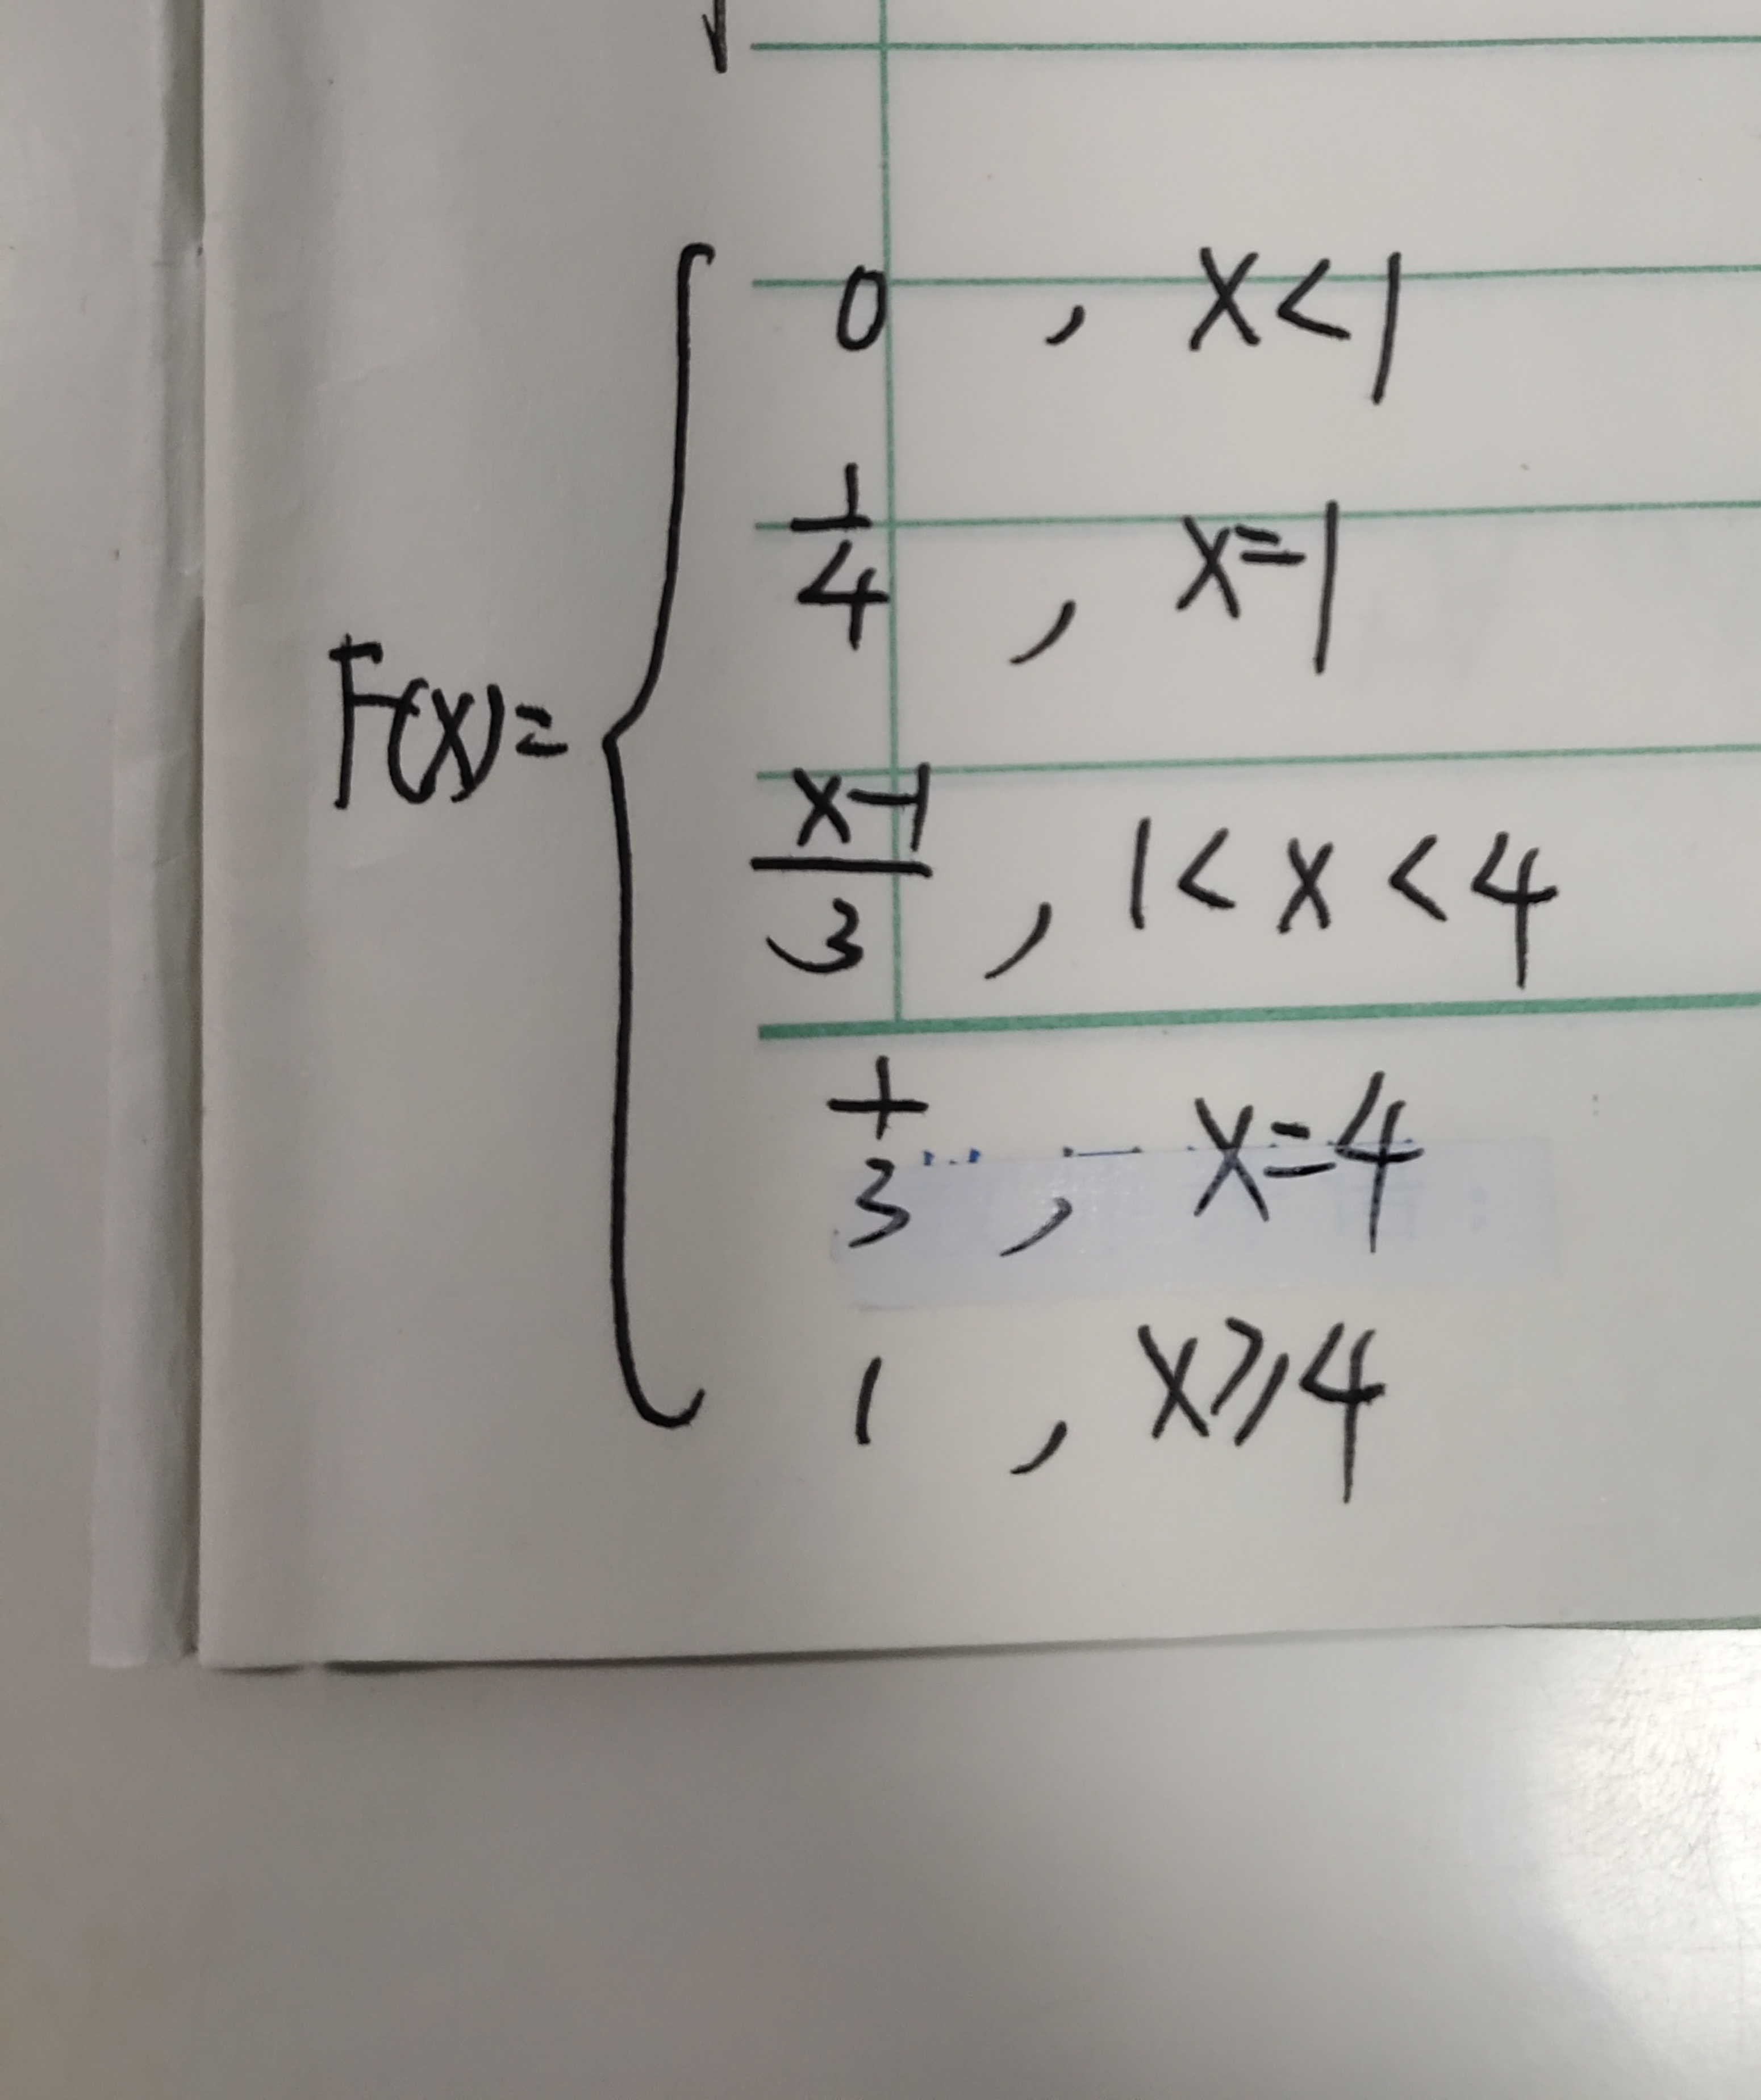 F(x)=
0 , x<1
1/4 , x=1
x-1/3 , 1<x<4
1/3 , x=4
1 , x⩾4